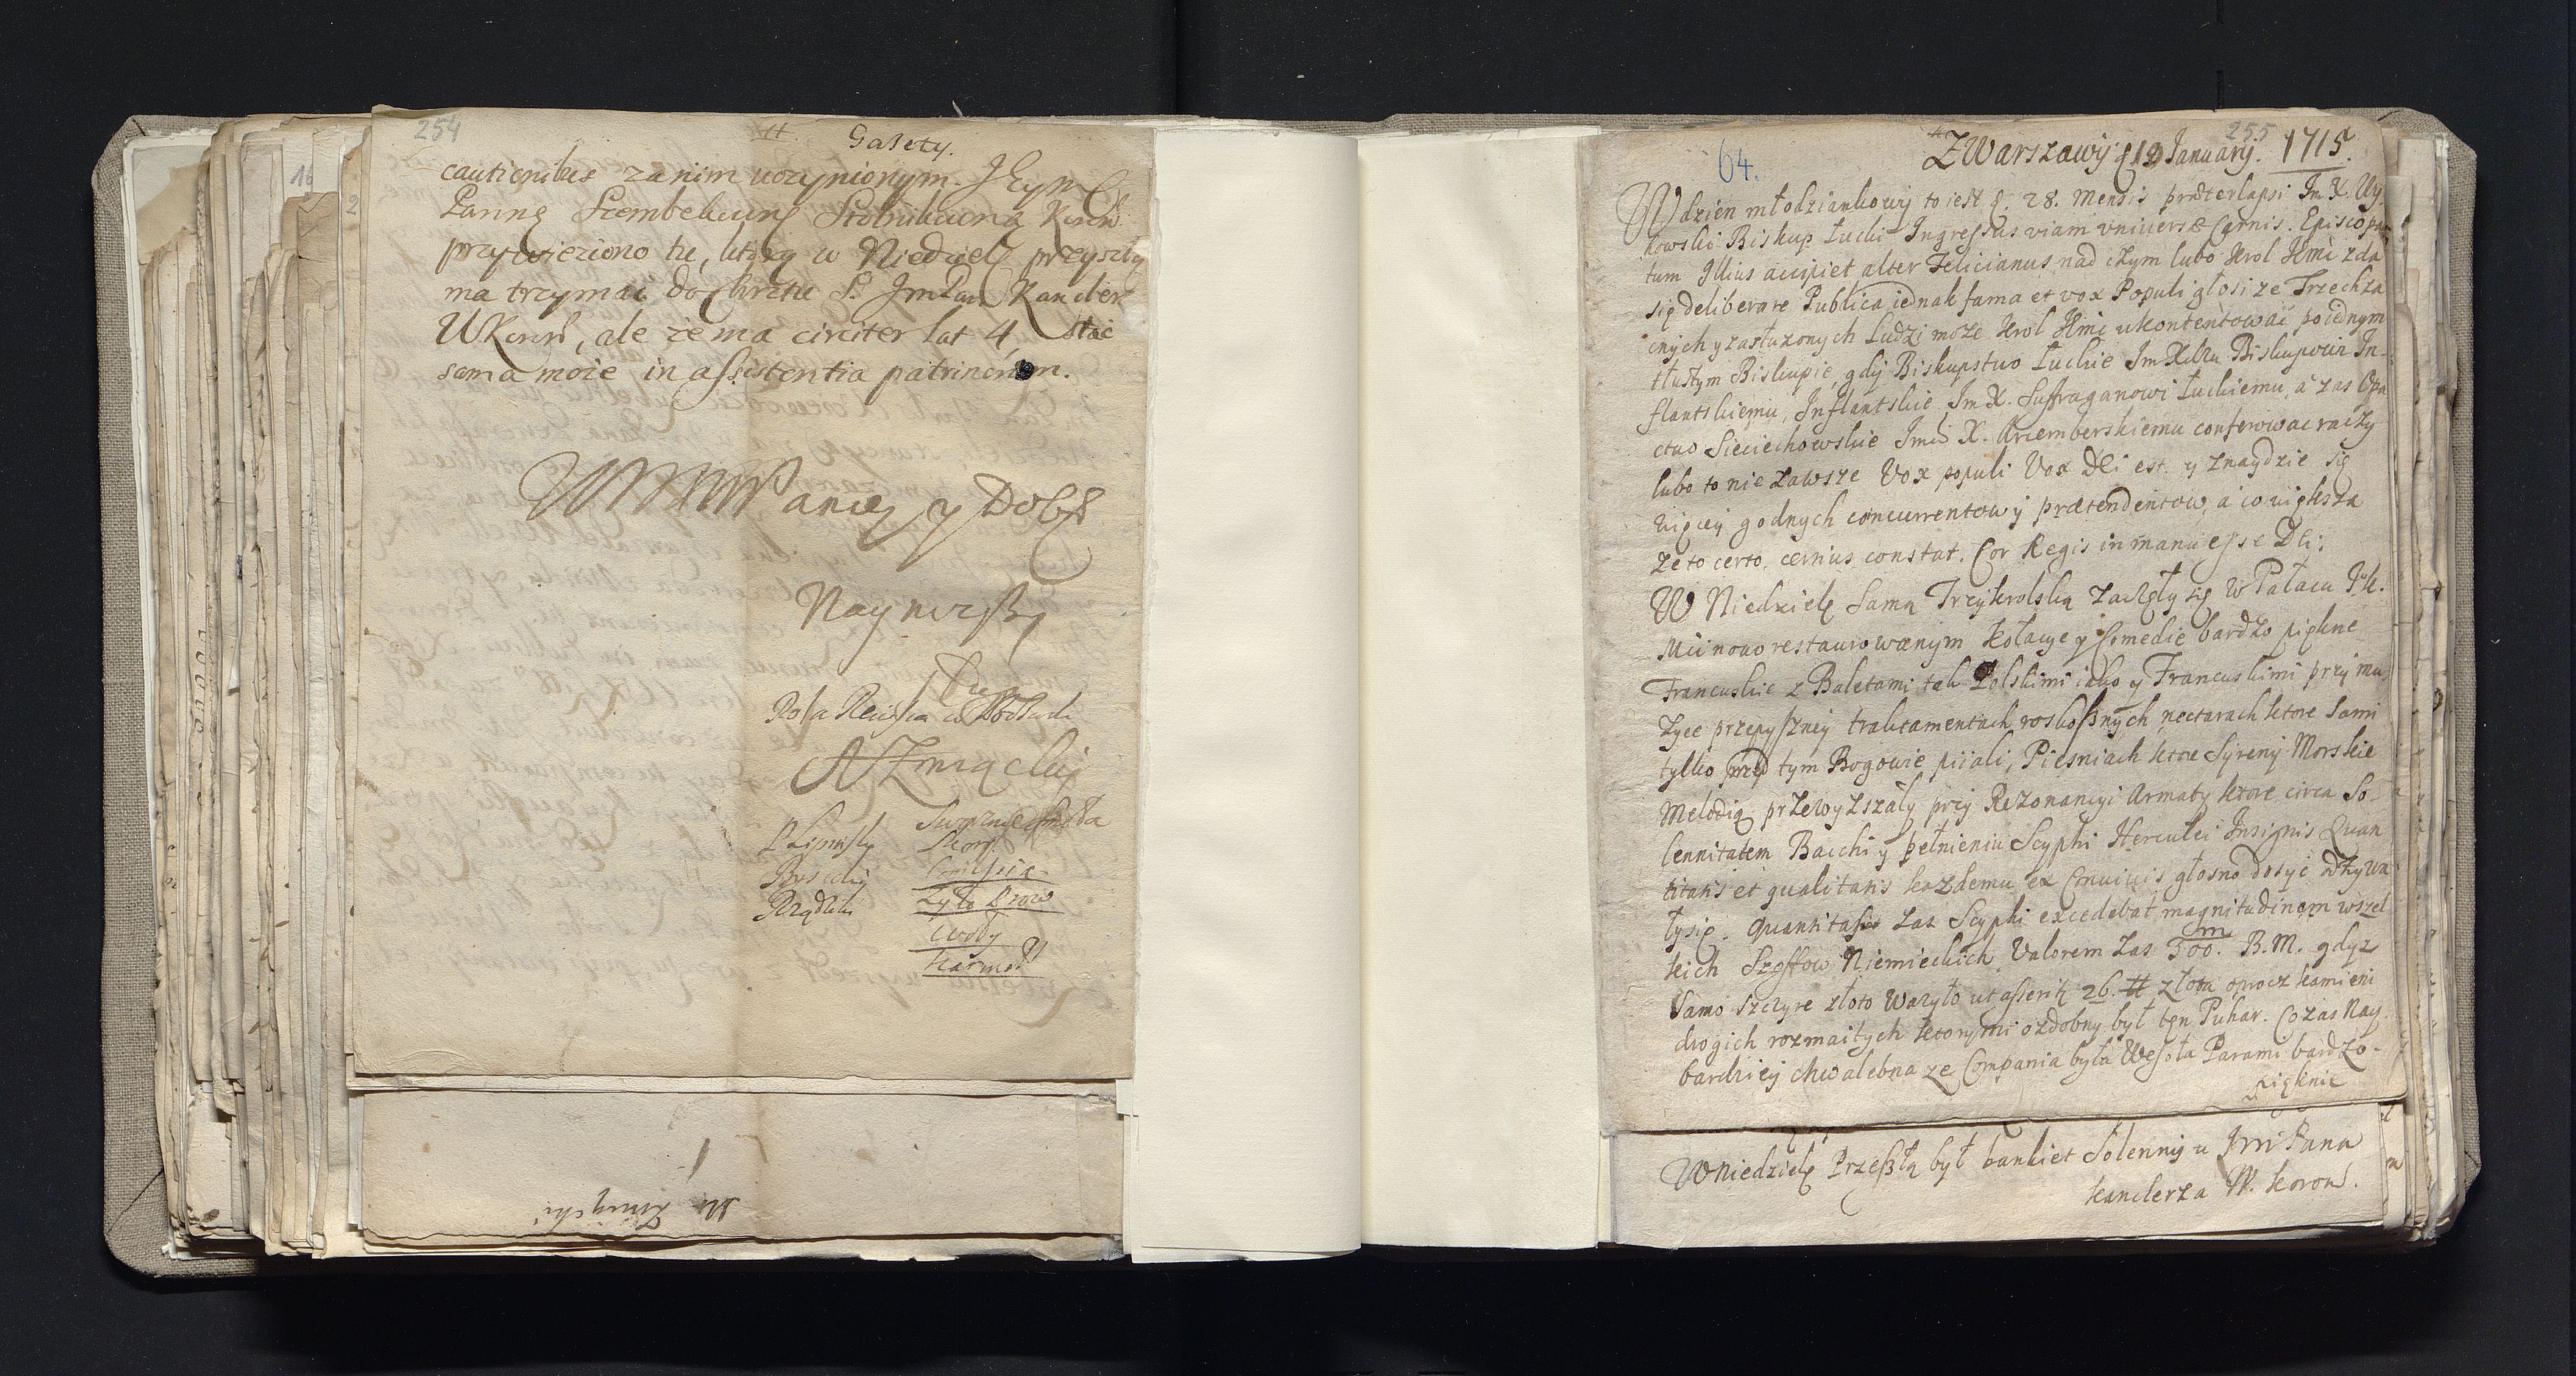 254
Gasety.
cautionibus za nim uczynionym. JEym
Pannę Szembekownę Stolnikowną Koron.
przywieziono tu, ktorą w Niedzielę przyszłą
ma trzymać do Chrztu S. JmPan Kanclerz
WKoron, ale że ma circiter lat 4, stać
sama może in assistentia patrinorum.
WMMMPaniey y Dobr
Nayniższy
A Zmiącky
Zyto
wody
Karmel
No Zmiącki
64.
255
Z Warszawÿ d 12 January. 1715.
W dzien młodziankowÿ to iest d. 28. Mensis præterlapsi Im. X. Wy-
howski Biskup Łucki Ingressus viam vniuersæ Carnis. Episcopa-
tum Illius accipiet alter Felicianus, nad czym lubo Krol Jmć zda
się deliberare Publica iednak fama et vox Populi głosi ze Trzech za
cnych y zasłuzonych Ludzi moze Krol Jmć ukontentować po iednym
tłustym Biskupie, gdÿ Biskupstwo Łuckie Im Xdzu Biskupowi In-
flantskiemu, Inflantskie Im X. Suffraganowi Łuckiemu, a zas Opa
ctwo Sieciechowskie Jmći X. Krzemberskiemu conferowac raczy
lubo to nie zawsze Vox populi Vox Dei est. y znaydzie się
więcey godnych concurrentow y prætendentow, a co większa
ze to certo, certius constat. Cor Regis in manu esse Dei;
W Niedzielę samą Trzykrolską zaczęły się w Pałacu J. K.
Mći nowo restaurowanym Kolacye y Comedie bardzo piękne
Francuskie z Baletami tak Polskimi iako y Francuskimi przy mu
zyce przepyszney traktamentach roskosznych, nectarach ktore sami
tylko przed tym Bogowie piiali, Piesniach ktore Syreny Morskie
Melodią przewyzszały przy Rezonancyi Armaty ktore circa So-
lennitatem Bacchi y pełnieniu Scyphi Herculei Insignis Quan
titatis et qualitatis kazdemu ex Conuiuis głosno dosyc odzywa
ły się. Quantitas zas Scyphi excedebat magnitudinem wszel
kich Szoffow Niemieckich, Valorem zas 500. B.M. gdyz
samo szczyre złoto wazyło ut asserit 26. tt złota oprocz kamieni
drogich rozmaitych ktorymi ozdobny był ten Puhar. Co zas Nay
bardziey chwalebna ze Compania była Wesoła Parami bardzo
pięknie
W Niedzielę Przeszłą był bankiet Solenny u Jmć Pana
Kanclerza W. Koron.